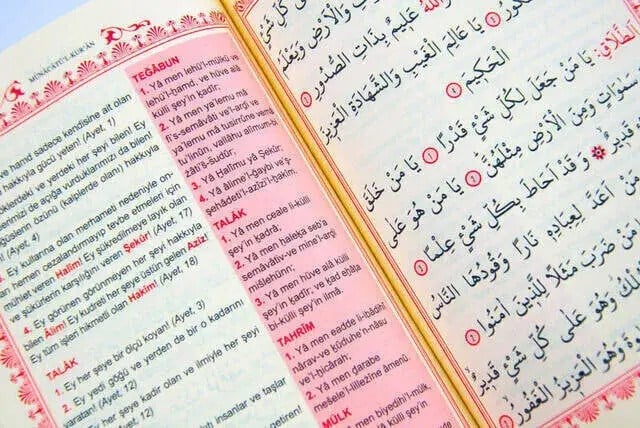 MÜNÂCÂTÜ'L-KUR'ÂN
ve hamd sadece kendisine ait olan
hakkıyla gücü yeten! (Ayet, 1)
klerdeki ve yerdeki her şeyi bilen! Ey
imizi de açığa vurduklarımızı da bilen!
ğüslerin özünü (kalplerde olanı) hakkıyla
(Ayet, 4)
Ey kullarına olan merhameti nedeniyle on-
arı hemen cezalandırmayıp tevbe etmeleri için
mühlet veren Halîm! Ey şükredilmeye layık olan
ve şükürlerin karşılığını veren Şekûr! (Ayet, 17)
4. Ey görünen görünmeyen her şeyi hakkıyla
bilen Âlim! Ey kudreti her şeye üstün gelen Azîz!
Ey tüm işleri hikmetli olan Hakîm! (Ayet, 18)
TALÂK
1. Ey her şeye bir ölçü koyan! (Ayet, 3)
2. Ey yedi göğü ve yerden de bir o kadarını
yaratan! (Ayet, 12)
Ey her şeye kadir olan ve ilmiyle her şeyi
(Ayet, 12)
insanlar ve taşlar
TEĞÂBUN
1. Yâ men lehü'l-mülkü ve
lehü'l-hamd, ve hüve alâ
külli şey'in kadîr;
2. Yâ men ya'lemu mâ
fi's-semâvâti ve'l-arḍi ve
ya'lemu mâ tusirrûne vemâ
tu'linûn, vallâhu alîmum-bi-
zâti's-ṣudûr;
3. Yâ Halîmu yâ Şekûr;
4. Yâ âlime'l-ğaybi ve'ş-
şehâdeti'l-azîzi'l-ḥakîm.
TALÂK
1. Yâ men ceale li-külli
şey'in ḳadrâ;
2. Yâ men haleḳa seb'a
semâvâtiv-ve mine'l-arḍi
mislehünn;
3. Yâ men hüve alâ külli
şey'in ḳadîr, ve ḳad eḥâta
bi-külli şey'in ilmâ.
TAHRÎM
1. Yâ men eadde li-ibâdihî
nârav-ve ḳûduhe'n-nâsu
ve'l-ḥicârah;
2. Yâ men ḍarabe
mesele'l-lillezîne âmenû.
MÜLK
1. Yâ men biyedihi'l-mülk,
كُلِّ شَيْ
وَالْاَرْضِ وَيَعْلَمُ
اللّٰهُ عَلِيمٌ بِذَاتِ الصُّدُورِ
يَا عَالِمَ الْغَيْبِ وَالشَّهَادَةِ الْعَزِيزُ
الْحَكِيمُ
الطَّلَاقِ: يَا مَنْ جَعَلَ لِكُلِّ شَيْءٍ قَدْرًا يَا مَنْ خَلَقَ
سَمٰوَاتٍ وَمِنَ الْاَرْضِ مِثْلَهُنَّ يَا مَنْ هُوَ عَلٰى
قَدِيرٌ وَ قَدْ اَحَاطَ بِكُلِّ شَيْءٍ عِلْمًا
مَنْ اَعَدَّ لِعِبَادِهِ نَارًا وَقُودُهَا النَّاسُ
مَنْ ضَرَبَ مَثَلًا لِلَّذِينَ اٰمَنُوا
وَهُوَ عَلٰى كُلِّ شَيْءٍ قَدِيرٌ
وَهُوَ الْعَزِيزُ الْغَفُورُ